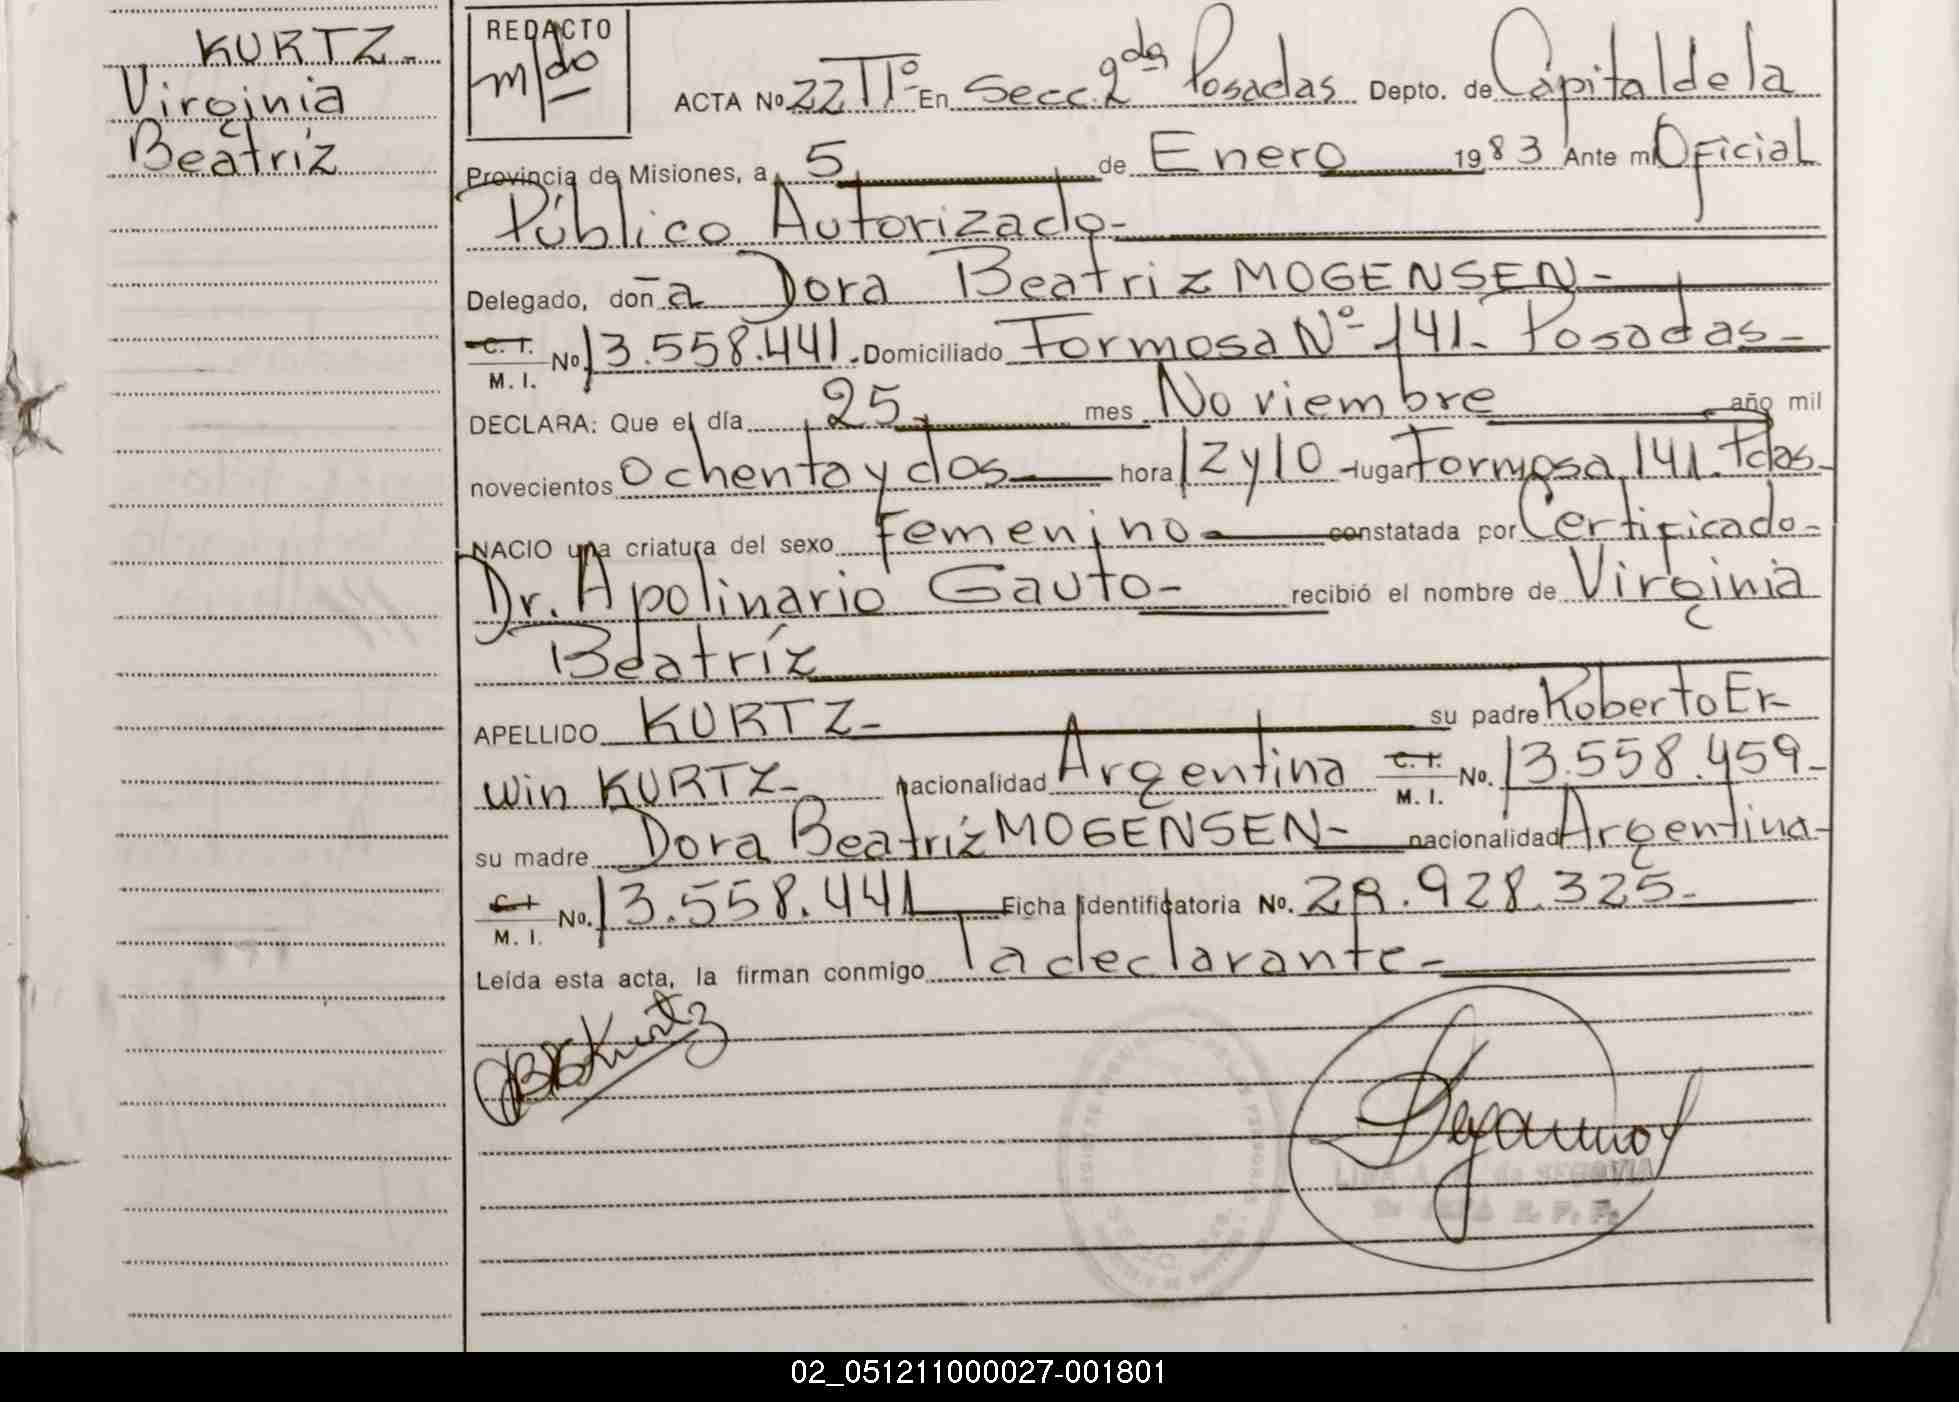 KURTZ-
Virginia
Beatríz
REDACTO
m/do
ACTA No 22 Tº II En Secc. 2da Posadas Depto. de Capital de la
Provincia de Misiones, a 5 de Enero 1983 Ante mi Oficial
Público Autorizado-
Delegado, doña Dora Beatriz MOGENSEN-
C. I.
M. I. No 13.558.441. Domiciliado Formosa Nº 141- Posadas-
DECLARA: Que el día 25 mes Noviembre año mil
novecientos ochenta y dos hora 12 y 10 lugar Formosa 141. Pdas-
NACIO una criatura del sexo Femenino constatada por Certificado-
Dr. Apolinario Gauto- recibió el nombre de Virginia
Beatríz
APELLIDO KURTZ- su padre Roberto Er-
win KURTZ- nacionalidad Argentina C. I. M. I. No. 13.558.459-
su madre Dora Beatríz MOGENSEN- nacionalidad Argentina-
C. I. M. I. No. 13.558.441 Ficha identificatoria No. 29.928.325-
Leída esta acta, la firman conmigo la declarante-
Kurtz
de SEGOVIA
02_051211000027-001801